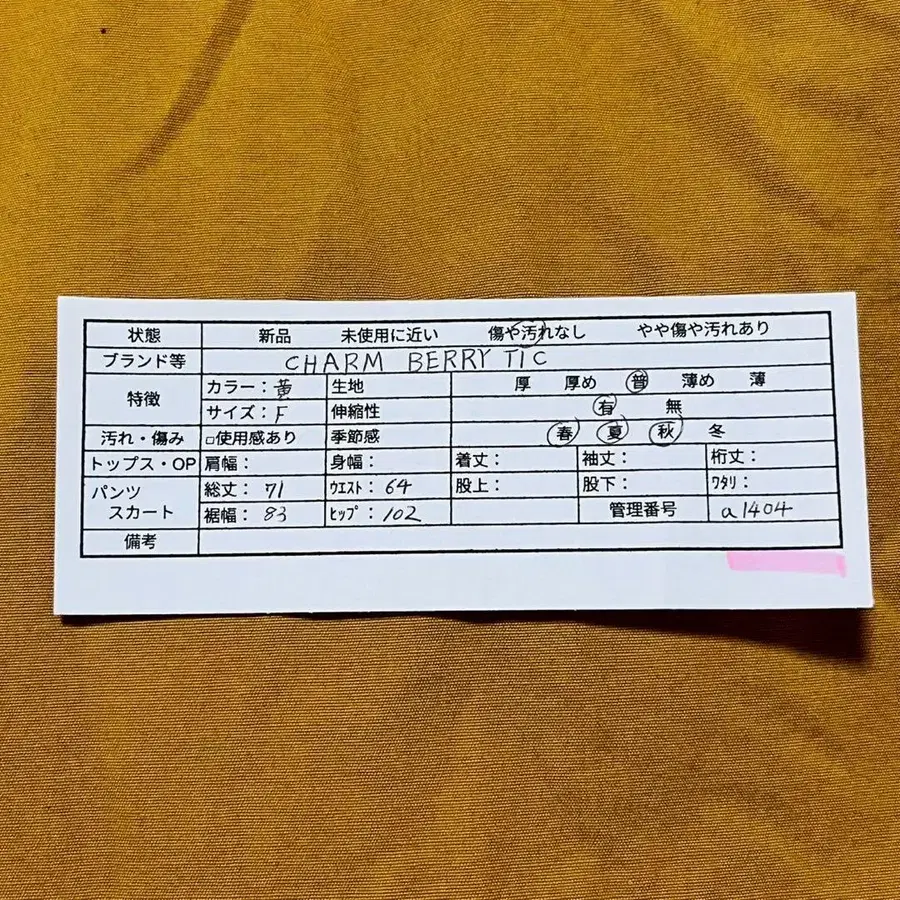 状態 新品 未使用に近い 傷や汚れなし やや傷や汚れあり
ブランド等 CHARM BERRY TIC
特徴 カラー：黄 生地 厚 厚め 普 薄め 薄
サイズ：F 伸縮性 有 無
汚れ・傷み □使用感あり 季節感 春 夏 秋 冬
トップス・OP 肩幅： 身幅： 着丈： 袖丈： 裄丈：
パンツ 総丈：71 ｳｴｽﾄ：64 股上： 股下： ﾜﾀﾘ：
スカート 裾幅：83 ﾋｯﾌﾟ：102 管理番号 a1404
備考